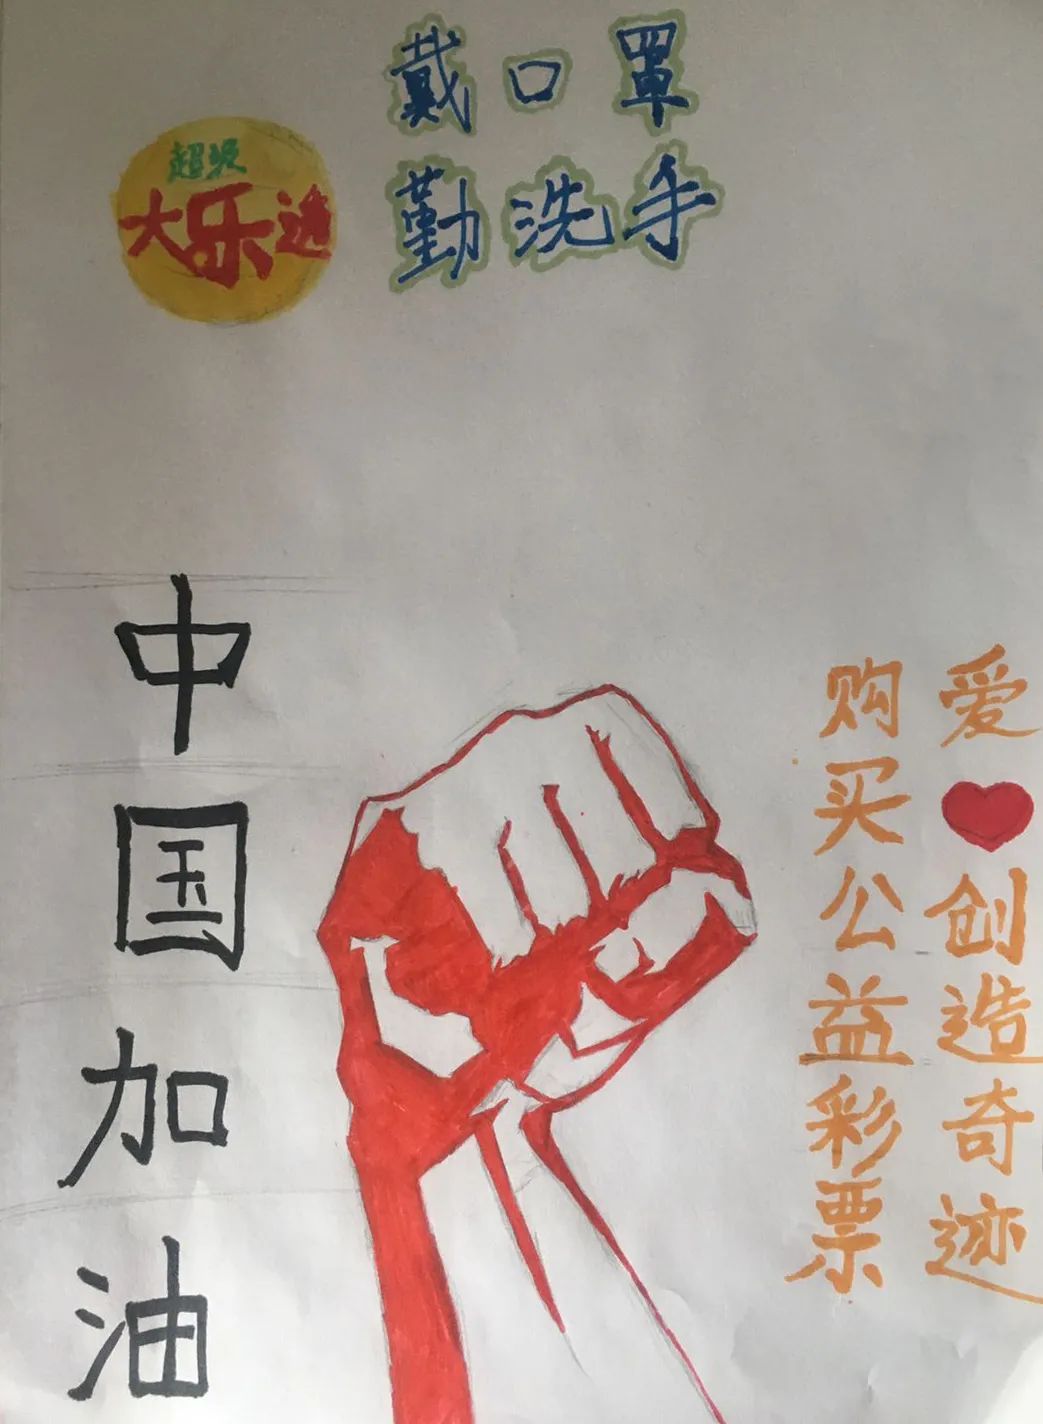 戴口罩
勤洗手
超级
大乐透
中国加油
爱❤创造奇迹
购买公益彩票